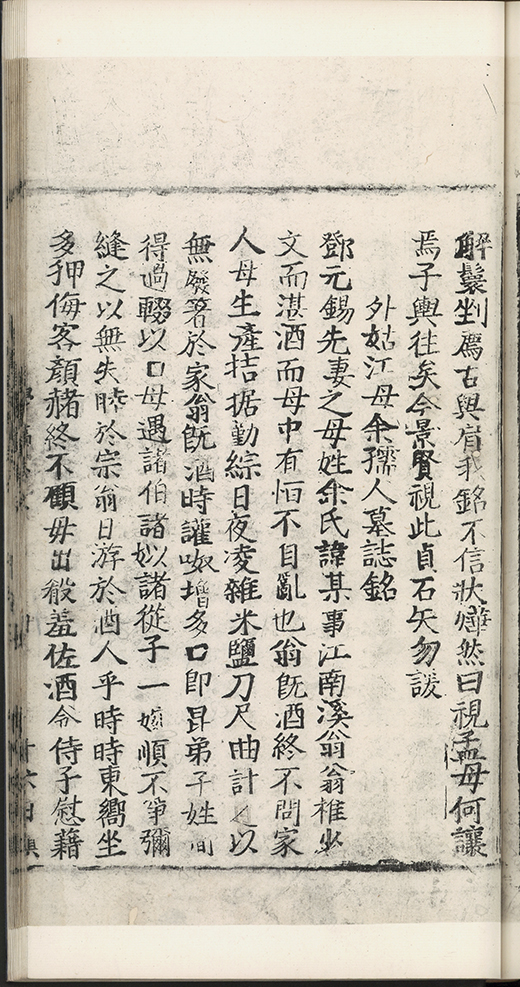 解鬟剉薦古與眉我銘不信狀燁然曰視孟母何讓
焉子輿往矣今景賢視此貞石矢勿諼
外姑江母余孺人墓誌銘
鄧元錫先妻之母姓余氏諱某事江南溪翁翁椎少
文而湛酒而母中有恒不自亂也翁既酒終不問家
人母生產拮据勤綜日夜凌雜米鹽刀尺曲計之以
無廢箸於家翁既酒時讙呶增多口即昆弟子姓間
得過輟以口母遇諸伯諸姒諸從子一婉順不爭彌
縫之以無失睦於宗翁日游於酒人乎時時東嚮坐
多狎侮客顏赭終不顧毋出殽羞佐酒令侍子慰藉